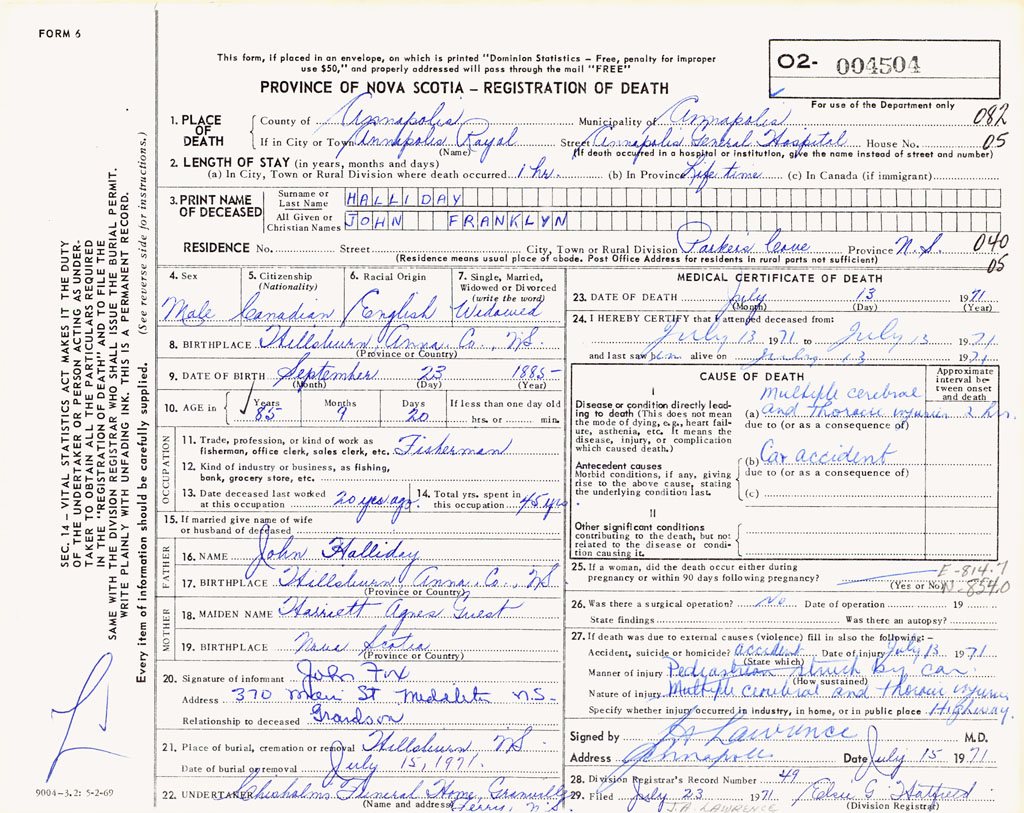 FORM 6
This form, if placed in an envelope, on which is printed "Dominion Statistics – Free, penalty for improper
use $50," and properly addressed will pass through the mail "FREE"
PROVINCE OF NOVA SCOTIA – REGISTRATION OF DEATH
O2- 004504
For use of the Department only
082
05
1. PLACE OF DEATH
County of Annapolis Municipality of Annapolis
If in City or Town Annapolis Royal Street Annapolis General Hospital House No.
(Name) (If death occurred in a hospital or institution, give the name instead of street and number)
2. LENGTH OF STAY (in years, months and days)
(a) In City, Town or Rural Division where death occurred 1 hr. (b) In Province Life time (c) In Canada (if immigrant)
3. PRINT NAME OF DECEASED
Surname or Last Name HALLIDAY
All Given or Christian Names JOHN FRANKLYN
RESIDENCE No. Street City, Town or Rural Division Parkers Cove Province N.S.
(Residence means usual place of abode. Post Office Address for residents in rural parts not sufficient)
040
05
4. Sex 5. Citizenship (Nationality) 6. Racial Origin 7. Single, Married, Widowed or Divorced (write the word)
Male Canadian English Widowed
8. BIRTHPLACE Hillsburn, Anna Co., N.S.
(Province or Country)
9. DATE OF BIRTH September 23 1885
(Month) (Day) (Year)
10. AGE in Years Months Days If less than one day old
85 9 20 hrs. or min.
OCCUPATION
11. Trade, profession, or kind of work as
fisherman, office clerk, sales clerk, etc. Fisherman
12. Kind of industry or business, as fishing,
bank, grocery store, etc.
13. Date deceased last worked at this occupation 20 yrs ago. 14. Total yrs. spent in this occupation 45 yrs
15. If married give name of wife
or husband of deceased
FATHER
16. NAME John Halliday
17. BIRTHPLACE Hillsburn Anna Co., N.S.
(Province or Country)
MOTHER
18. MAIDEN NAME Harriett Agnes Guest
19. BIRTHPLACE Nova Scotia
(Province or Country)
20. Signature of informant John Fox
Address 370 Main St N.S.
Relationship to deceased Grandson
21. Place of burial, cremation or removal Hillsburn, N.S.
Date of burial or removal July 15, 1971.
22. UNDERTAKER Chisholms Funeral Home, Granville
(Name and address) Ferry, N.S.
MEDICAL CERTIFICATE OF DEATH
23. DATE OF DEATH July 13 1971
(Month) (Day) (Year)
24. I HEREBY CERTIFY that I attended deceased from:
July 13 1971 to July 13 1971
and last saw him alive on July 13 1971
CAUSE OF DEATH
Approximate interval between onset and death
I
Disease or condition directly leading to death (This does not mean the mode of dying, e.g., heart failure, asthenia, etc. It means the disease, injury, or complication which caused death.)
Multiple cerebral
(a) and thoracic injuries 2 hrs.
due to (or as a consequence of)
Antecedent causes
Morbid conditions, if any, giving rise to the above cause, stating the underlying condition last.
(b) Car accident
due to (or as a consequence of)
(c)
II
Other significant conditions
contributing to the death, but not related to the disease or condition causing it.
25. If a woman, did the death occur either during
pregnancy or within 90 days following pregnancy?
(Yes or No)
E-814.7
N-854.0
26. Was there a surgical operation? No Date of operation 19
State findings Was there an autopsy?
27. If death was due to external causes (violence) fill in also the following: –
Accident, suicide or homicide? accident Date of injury July 13 1971
(State which)
Manner of injury Pedestrian struck by car
(How sustained)
Nature of injury Multiple cerebral and thoracic injuries
Specify whether injury occurred in industry, in home, or in public place Highway.
Signed by Lawrence M.D.
Address Annapolis Date July 15 1971
28. Division Registrar's Record Number 49
29. Filed July 23 1971 Elsie G Hatfield
J.A. LAWRENCE (Division Registrar)
SEC. 14 – VITAL STATISTICS ACT MAKES IT THE DUTY
OF THE UNDERTAKER OR PERSON ACTING AS UNDER-
TAKER TO OBTAIN ALL THE PARTICULARS REQUIRED
IN THE "REGISTRATION OF DEATH" AND TO FILE THE
SAME WITH THE DIVISION REGISTRAR WHO SHALL ISSUE THE BURIAL PERMIT.
WRITE PLAINLY WITH UNFADING INK. THIS IS A PERMANENT RECORD.
Every item of information should be carefully supplied. (See reverse side for instructions.)
9004-3.2: 5-2-69